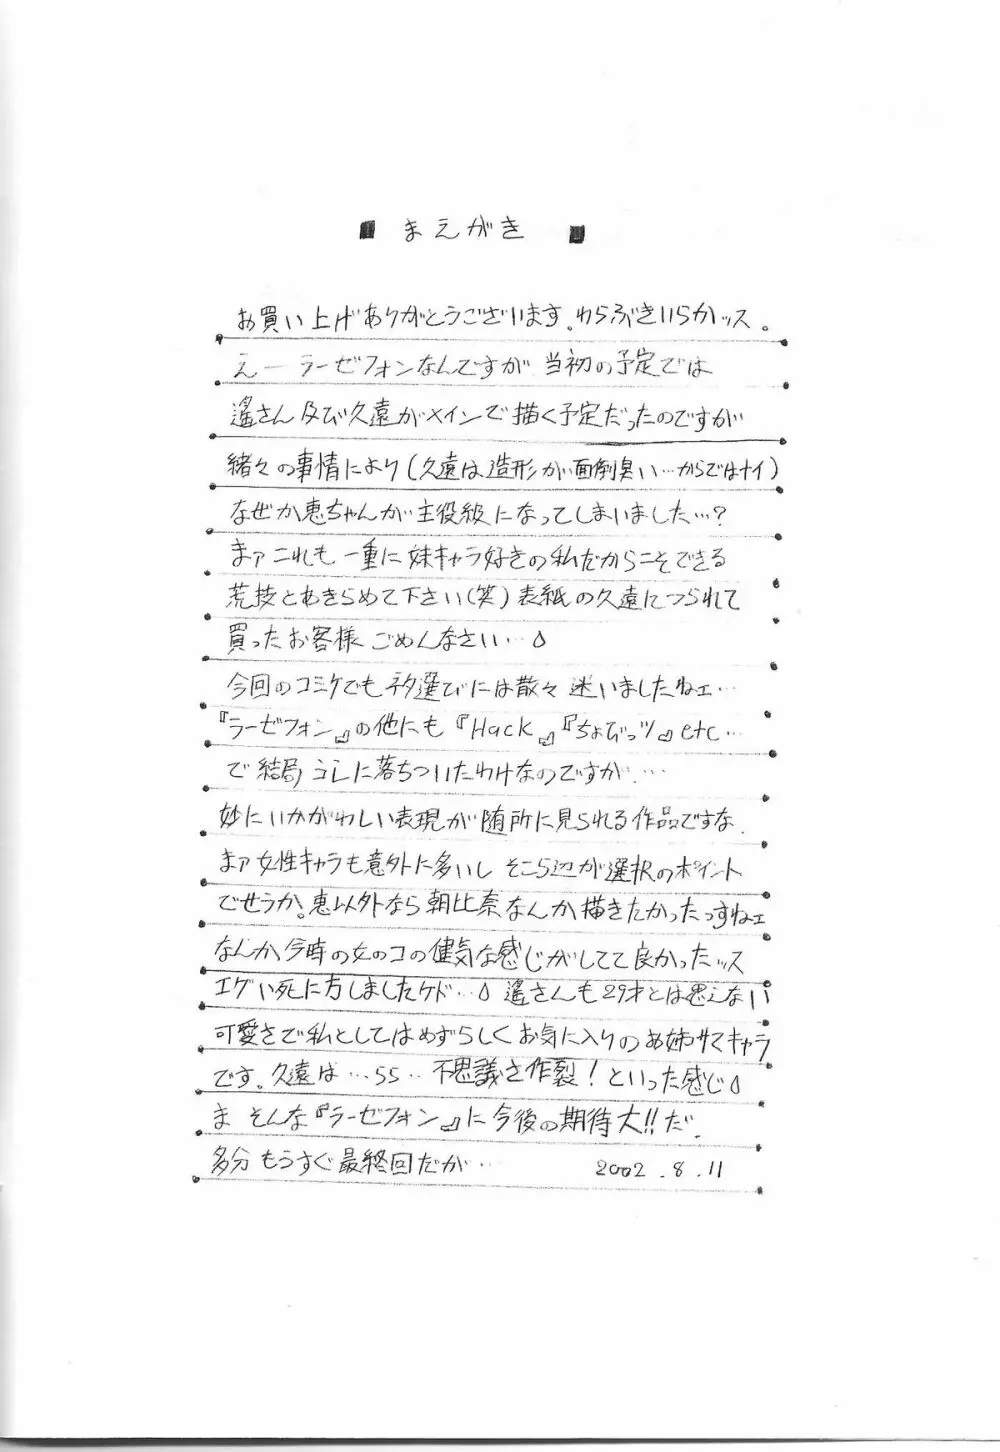 ■ まえがき ■
お買い上げありがとうございます。わらぶきいらかッス。
えー ラーゼフォンなんですが 当初の予定では
遙さん及び久遠がメインで描く予定だったのですが
緒々の事情により(久遠は造形が面倒臭い…からではナイ)
なぜか恵ちゃんが主役級になってしまいました…?
まァこれも一重に妹キャラ好きの私だからこそできる
荒技とあきらめて下さい(笑)表紙の久遠につられて
買ったお客様ごめんなさい…
今回のコミケでもネタ選びには散々迷いましたねェ…
『ラーゼフォン』の他にも『Hack』『ちょびっツ』etc…
で結局コレに落ちついたわけなのですが…
妙にいかがわしい表現が随所に見られる作品ですな.
まァ女性キャラも意外に多いし そこら辺が選択のポイント
でせうか。恵以外なら朝比奈なんか描きたかったっすねェ
なんか今時の女のコの健気な感じがしてて良かったッス
エグい死に方しましたケド… 遙さんも29才とは思えない
可愛さで私としてはめずらしくお気に入りのお姉サマキャラ
です。久遠は…ララ…不思議さ作裂!といった感じ
ま そんな『ラーゼフォン』に今後の期待大!!だ.
多分もうすぐ最終回だが… 2002.8.11